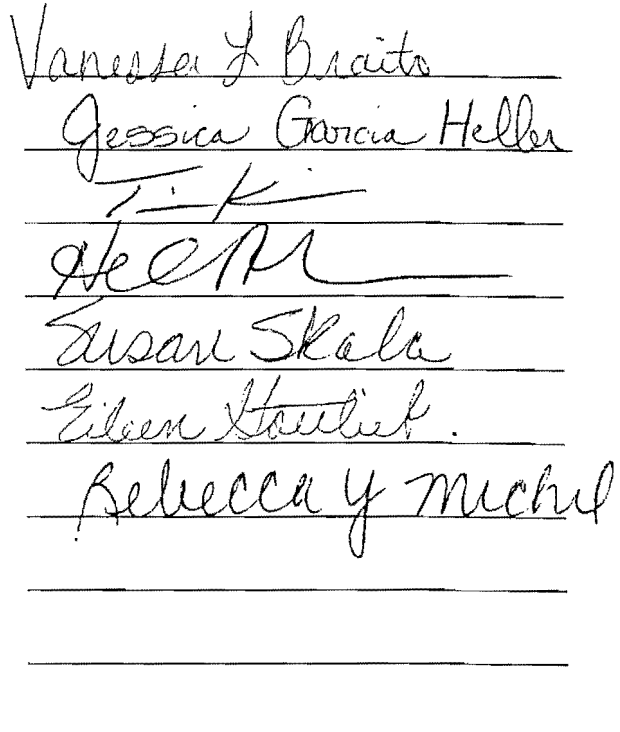 Vanessa L Braito
Jessica Garcia Heller
Tin Ki
Susan Skala
Eileen
Rebecca Y Michel